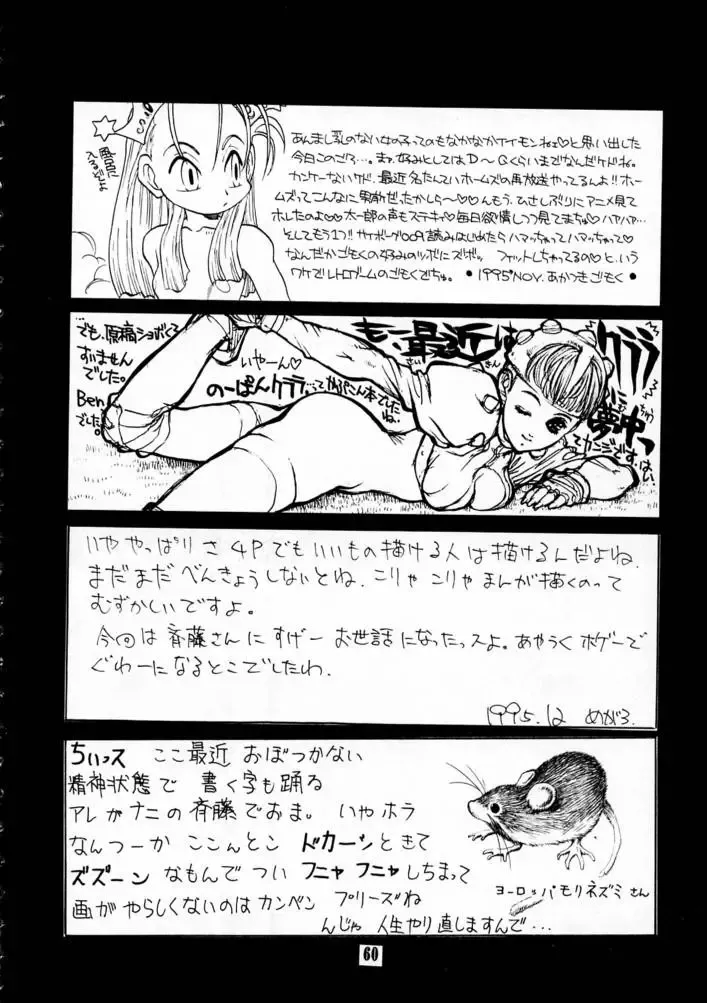 あんまし乳のない女の子ってのもなかなかイイモンねェ♡と思い出した
今日このごろ…。まァ好みとしてはD〜Gくらいまでなんだケドね。
カンケーないケド、最近名たんていホームズの再放送やってるんよ!!ホー
ムズってこんなに男前だったかしら〜♡♡んもう、ひさしぶりにアニメ見て
ホレたのよ♡太一郎の声もステキ♡毎日欲情しつつ見てまちゅ♡ハァハァ…
そしてもう1つ!!サイボーグ009読みはじめたらハマっちゃってハマっちゃって♡
なんだかごもくの好みのツボにズボッ。フィットしちゃってるの♡と、いう
ワケでレトロブームのごもくでちゅ。●1995°NOV.あかつきごもく●
でも、原稿ショボくて
すいません
でした。
Ben
でした。
いやーん♡
のーぱんクララ
も、最近は
さい きん
クララ
に
夢中っ
む ちゅう
です。はい。
いややっぱりさ 4Pでもいいもの描ける人は描けるんだよね
まだまだべんきょうしないとね。こりゃこりゃまんが描くのって
むずかしいですよ。
今回は斉藤さんにすげー お世話になったっスよ。あやうくボゲーで
ぐわーになるとこでしたわ.
1995.12 めがろ.
ちいっス ここ最近 おぼつかない
精神状態で 書く字も踊る
アレがナニの斉藤でおま。いやホラ
なんつーか ここんとこ ドカーンときて
ズズーン なもんで つい フニャフニャしちまって
画が やらしくないのはカンベン プリーズね
んじゃ 人生やり直しますんで…
ヨーロッパモリネズミさん
60